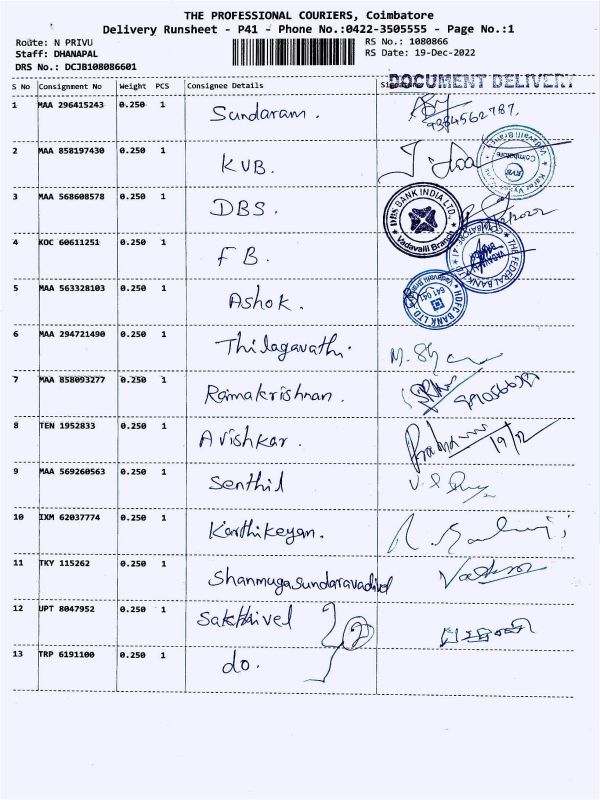 THE PROFESSIONAL COURIERS, Coimbatore
Delivery Runsheet - P41 - Phone No.:0422-3505555 - Page No.:1
Route: N PRIVU
Staff: DHANAPAL
DRS No.: DCJB108086601
RS No.: 1080866
RS Date: 19-Dec-2022
DOCUMENT DELIVERY
S No Consignment No Weight PCS Consignee Details
1 MAA 296415243 0.250 1 Sundaram.
9384562787.
2 MAA 858197430 0.250 1 KVB.
3 MAA 568608578 0.250 1 DBS.
DBS BANK INDIA LTD.
Vadavalli Branch
4 KOC 60611251 0.250 1 FB.
THE FEDERAL BANK LTD
COIMBATORE-41
5 MAA 563328103 0.250 1 Ashok.
HDFC BANK LTD
Vadavalli Branch
641 041
6 MAA 294721490 0.250 1 Thilagavathi.
7 MAA 858093277 0.250 1 Ramakrishnan.
8 TEN 1952833 0.250 1 Avishkar.
19/12
9 MAA 569260563 0.250 1 Senthil
10 IXM 62037774 0.250 1 Karthikeyan.
11 TKY 115262 0.250 1 Shanmugasundaravadivel
12 UPT 8047952 0.250 1 Sakthivel
2
13 TRP 6191100 0.250 1 do.